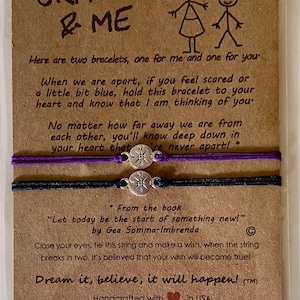 & ME
Here are two bracelets, one for me and one for you.
When we are apart, if you feel scared or
a little bit blue, hold this bracelet to your
heart and know that I am thinking of you.
No matter how far away we are from
each other, you'll know deep down in
your heart that we're never apart! *
* From the book
"Let today be the start of something new!"
by Gea Somma-Imbrenda
©
Close your eyes, tie this string and make a wish, when the string
breaks in two, it's believed that your wish will become true!
Dream it, believe, it will happen! (TM)
Handcrafted with ❤ in USA